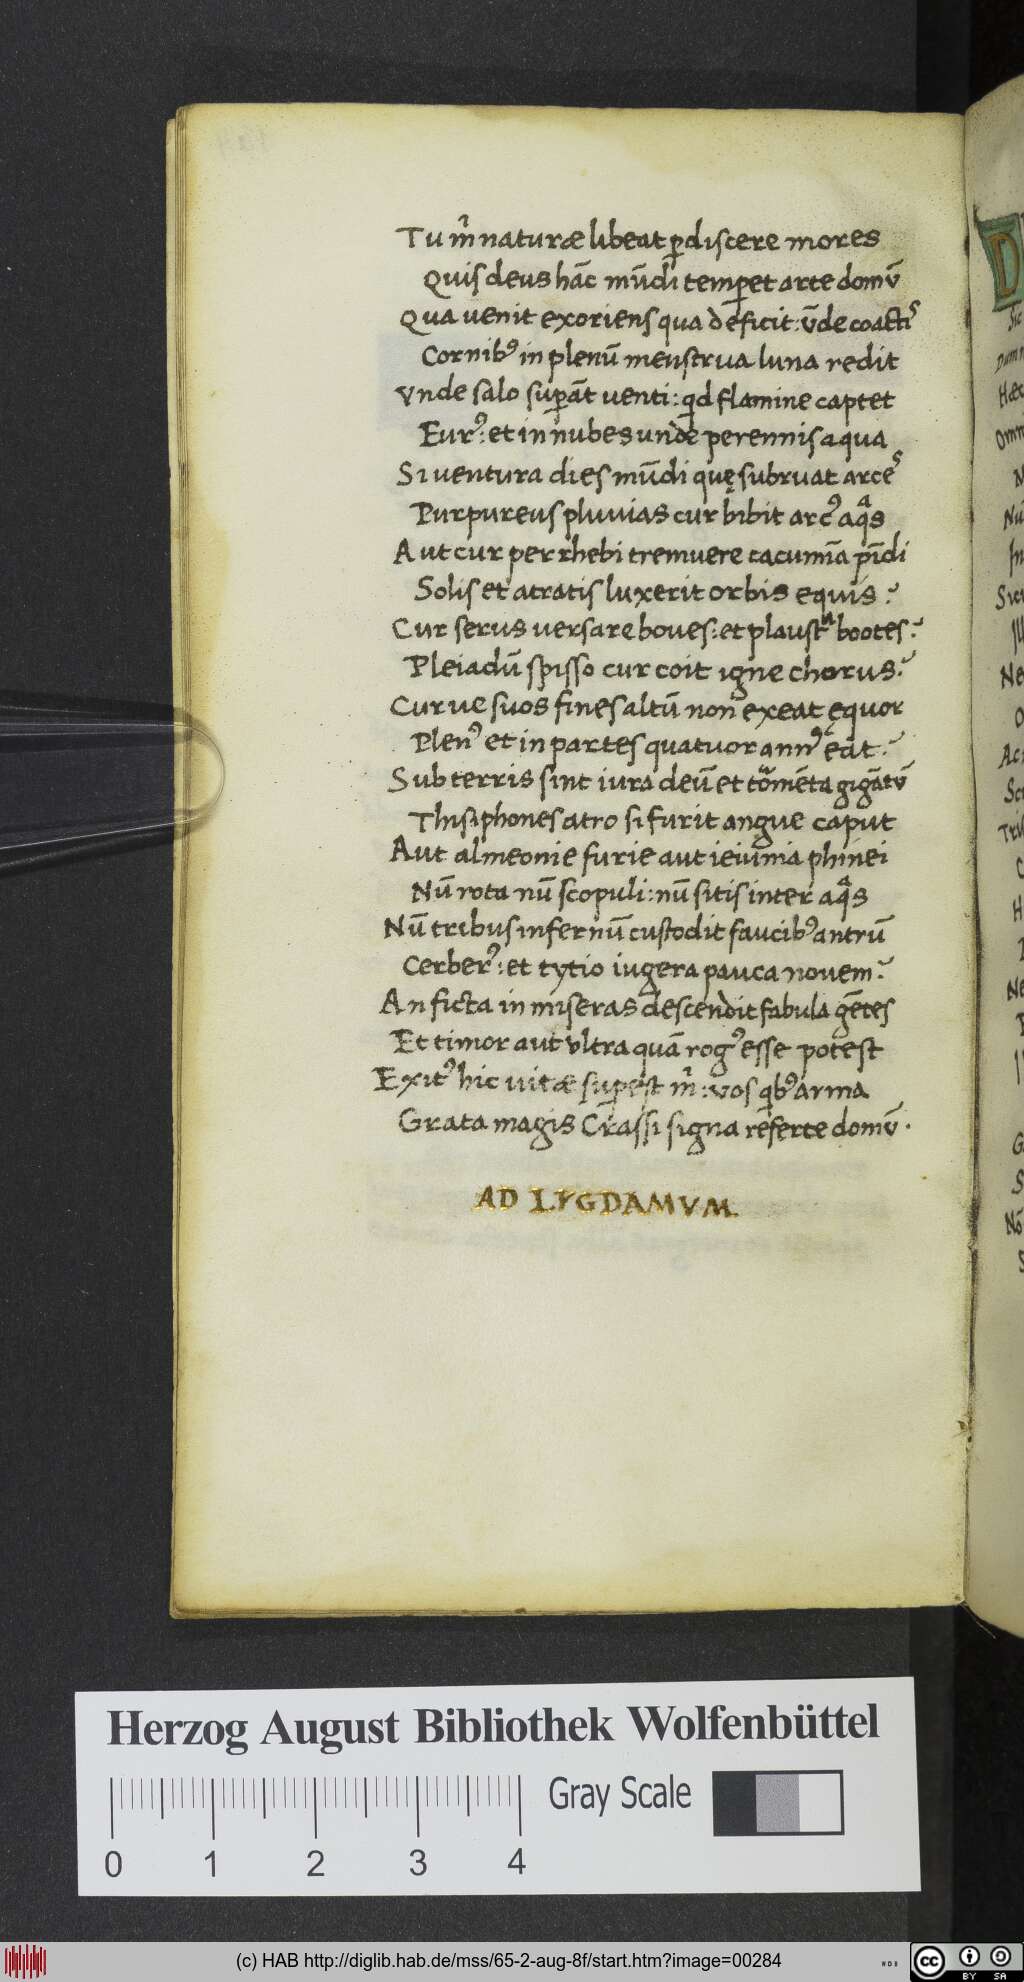 Tu m̃ naturæ libeat ꝑdiscere mores
Quis deus hãc mũdi temꝑet arte domũ
Qua uenit exoriens qua deficit: ũde coactis
Cornibꝰ in plenũ menstrua luna redit
Vnde salo suꝑãt uenti: qd flamine captet
Eurꝰ: et in nubes unde perennis aqua
Si uentura dies mũdi quę subruat arces
Purpureus pluuias cur bibit arcꝰ aqᵃs
Aut cur perrhebi tremuere cacumĩa pĩdi
Solis et atratis luxerit orbis equis?
Cur serus uersare boues: et plaustᵃ bootes?
Pleiadũ spisso cur coit igne chorus?
Curue suos fines altũ non exeat ęquor
Plenꝰ et in partes quatuor annꝰ eat?
Sub terris sint iura deũ et tõmẽta gigãtũ
Thisiphones atro si furit angue caput
Aut almeonie furie aut ieiunia phinei
Nũ rota nũ scopuli: nũ sitis inter aqᵃs
Nũ tribus infernũ custodit faucibꝰ antrũ
Cerberꝰ: et tytio iugera pauca nouem?
An ficta in miseras descendit fabula gẽtes
Et timor aut ultra quã rogꝰ esse potest
Exitꝰ hic uitæ suꝑest m̃: uos qbꝰ arma
Grata magis Crassi signa referte domũ.
AD LYGDAMVM.
Herzog August Bibliothek Wolfenbüttel
Gray Scale
0 1 2 3 4
(c) HAB http://diglib.hab.de/mss/65-2-aug-8f/start.htm?image=00284
cc BY SA